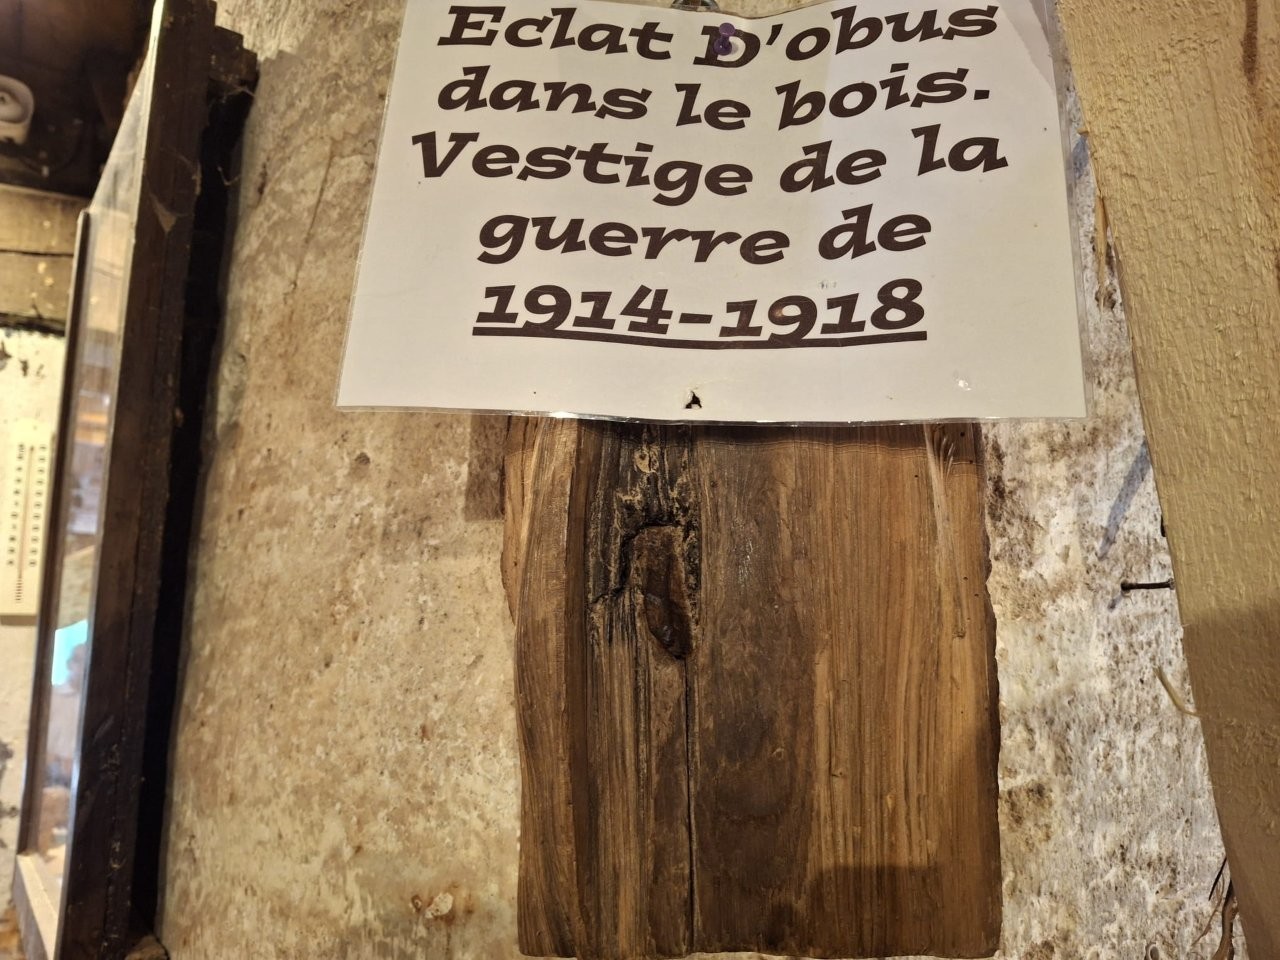 Eclat D'obus
dans le bois.
Vestige de la
guerre de
1914-1918